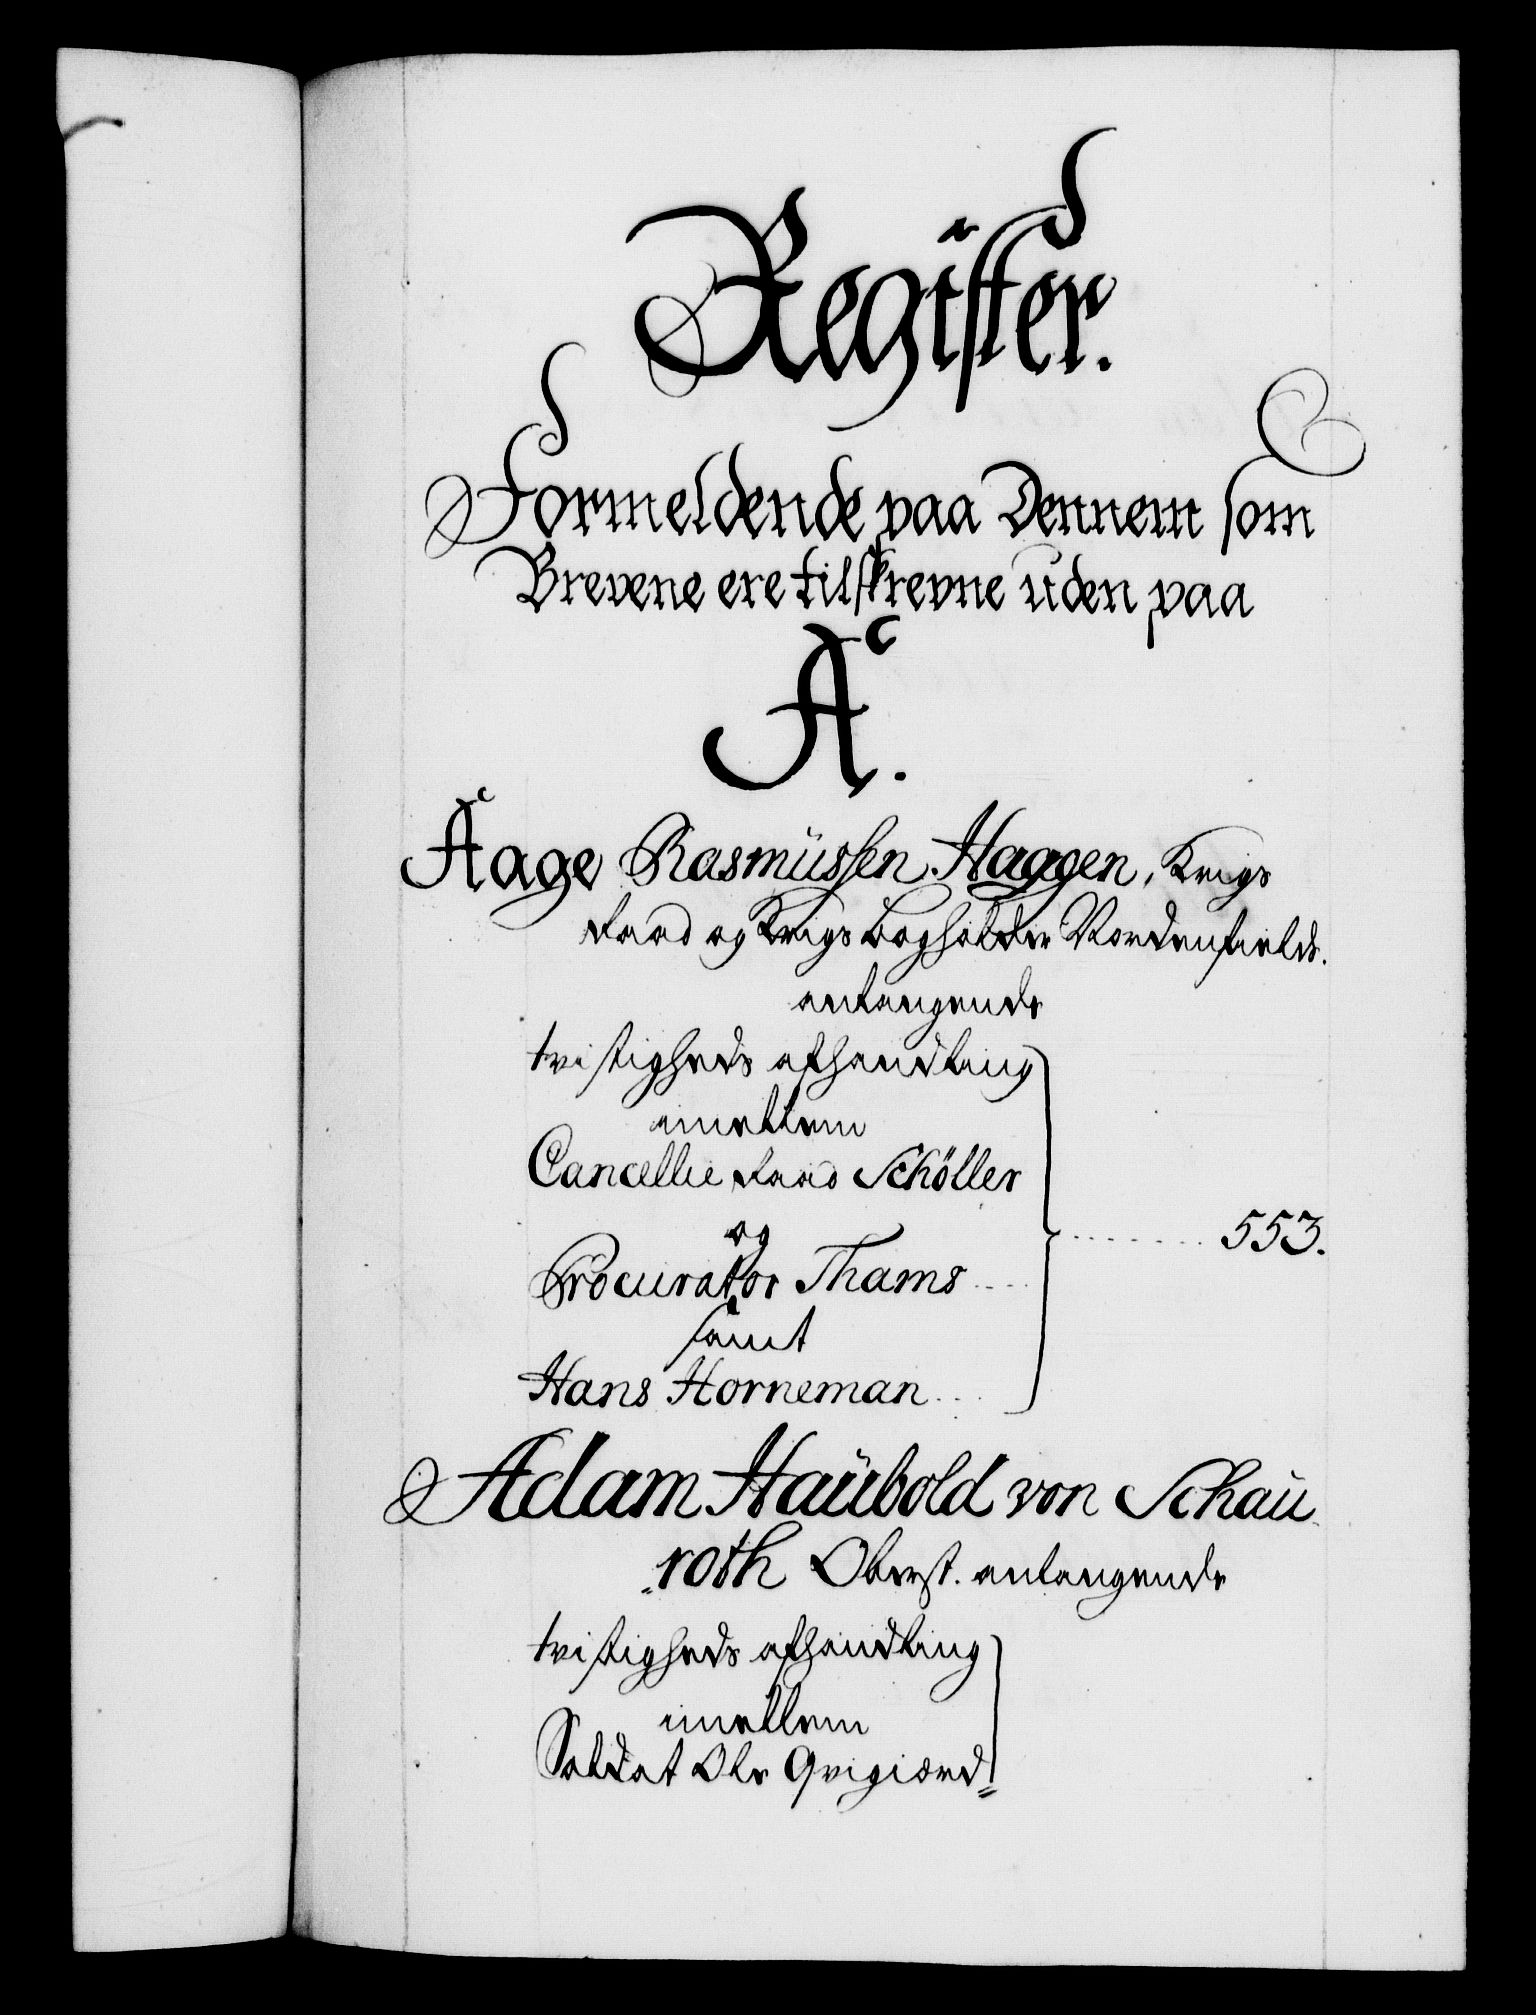 Register.
Formeldende paa Dennem som
Brevene ere tilskrevne uden paa
A.
Aage Rasmüssen Haggen, Krigs
Raad og Krigs bogholder Nordenfields.
anlangende
tvistigheds afhandling
imellem
Cancellie Raad Schöller
og
Procurator Thams
samt
Hans Horneman
553.
Adam Haübold von Schau
roth Oberst. anlangende
tvistigheds afhandling
imellem
Soldat Ole Qvigiord=